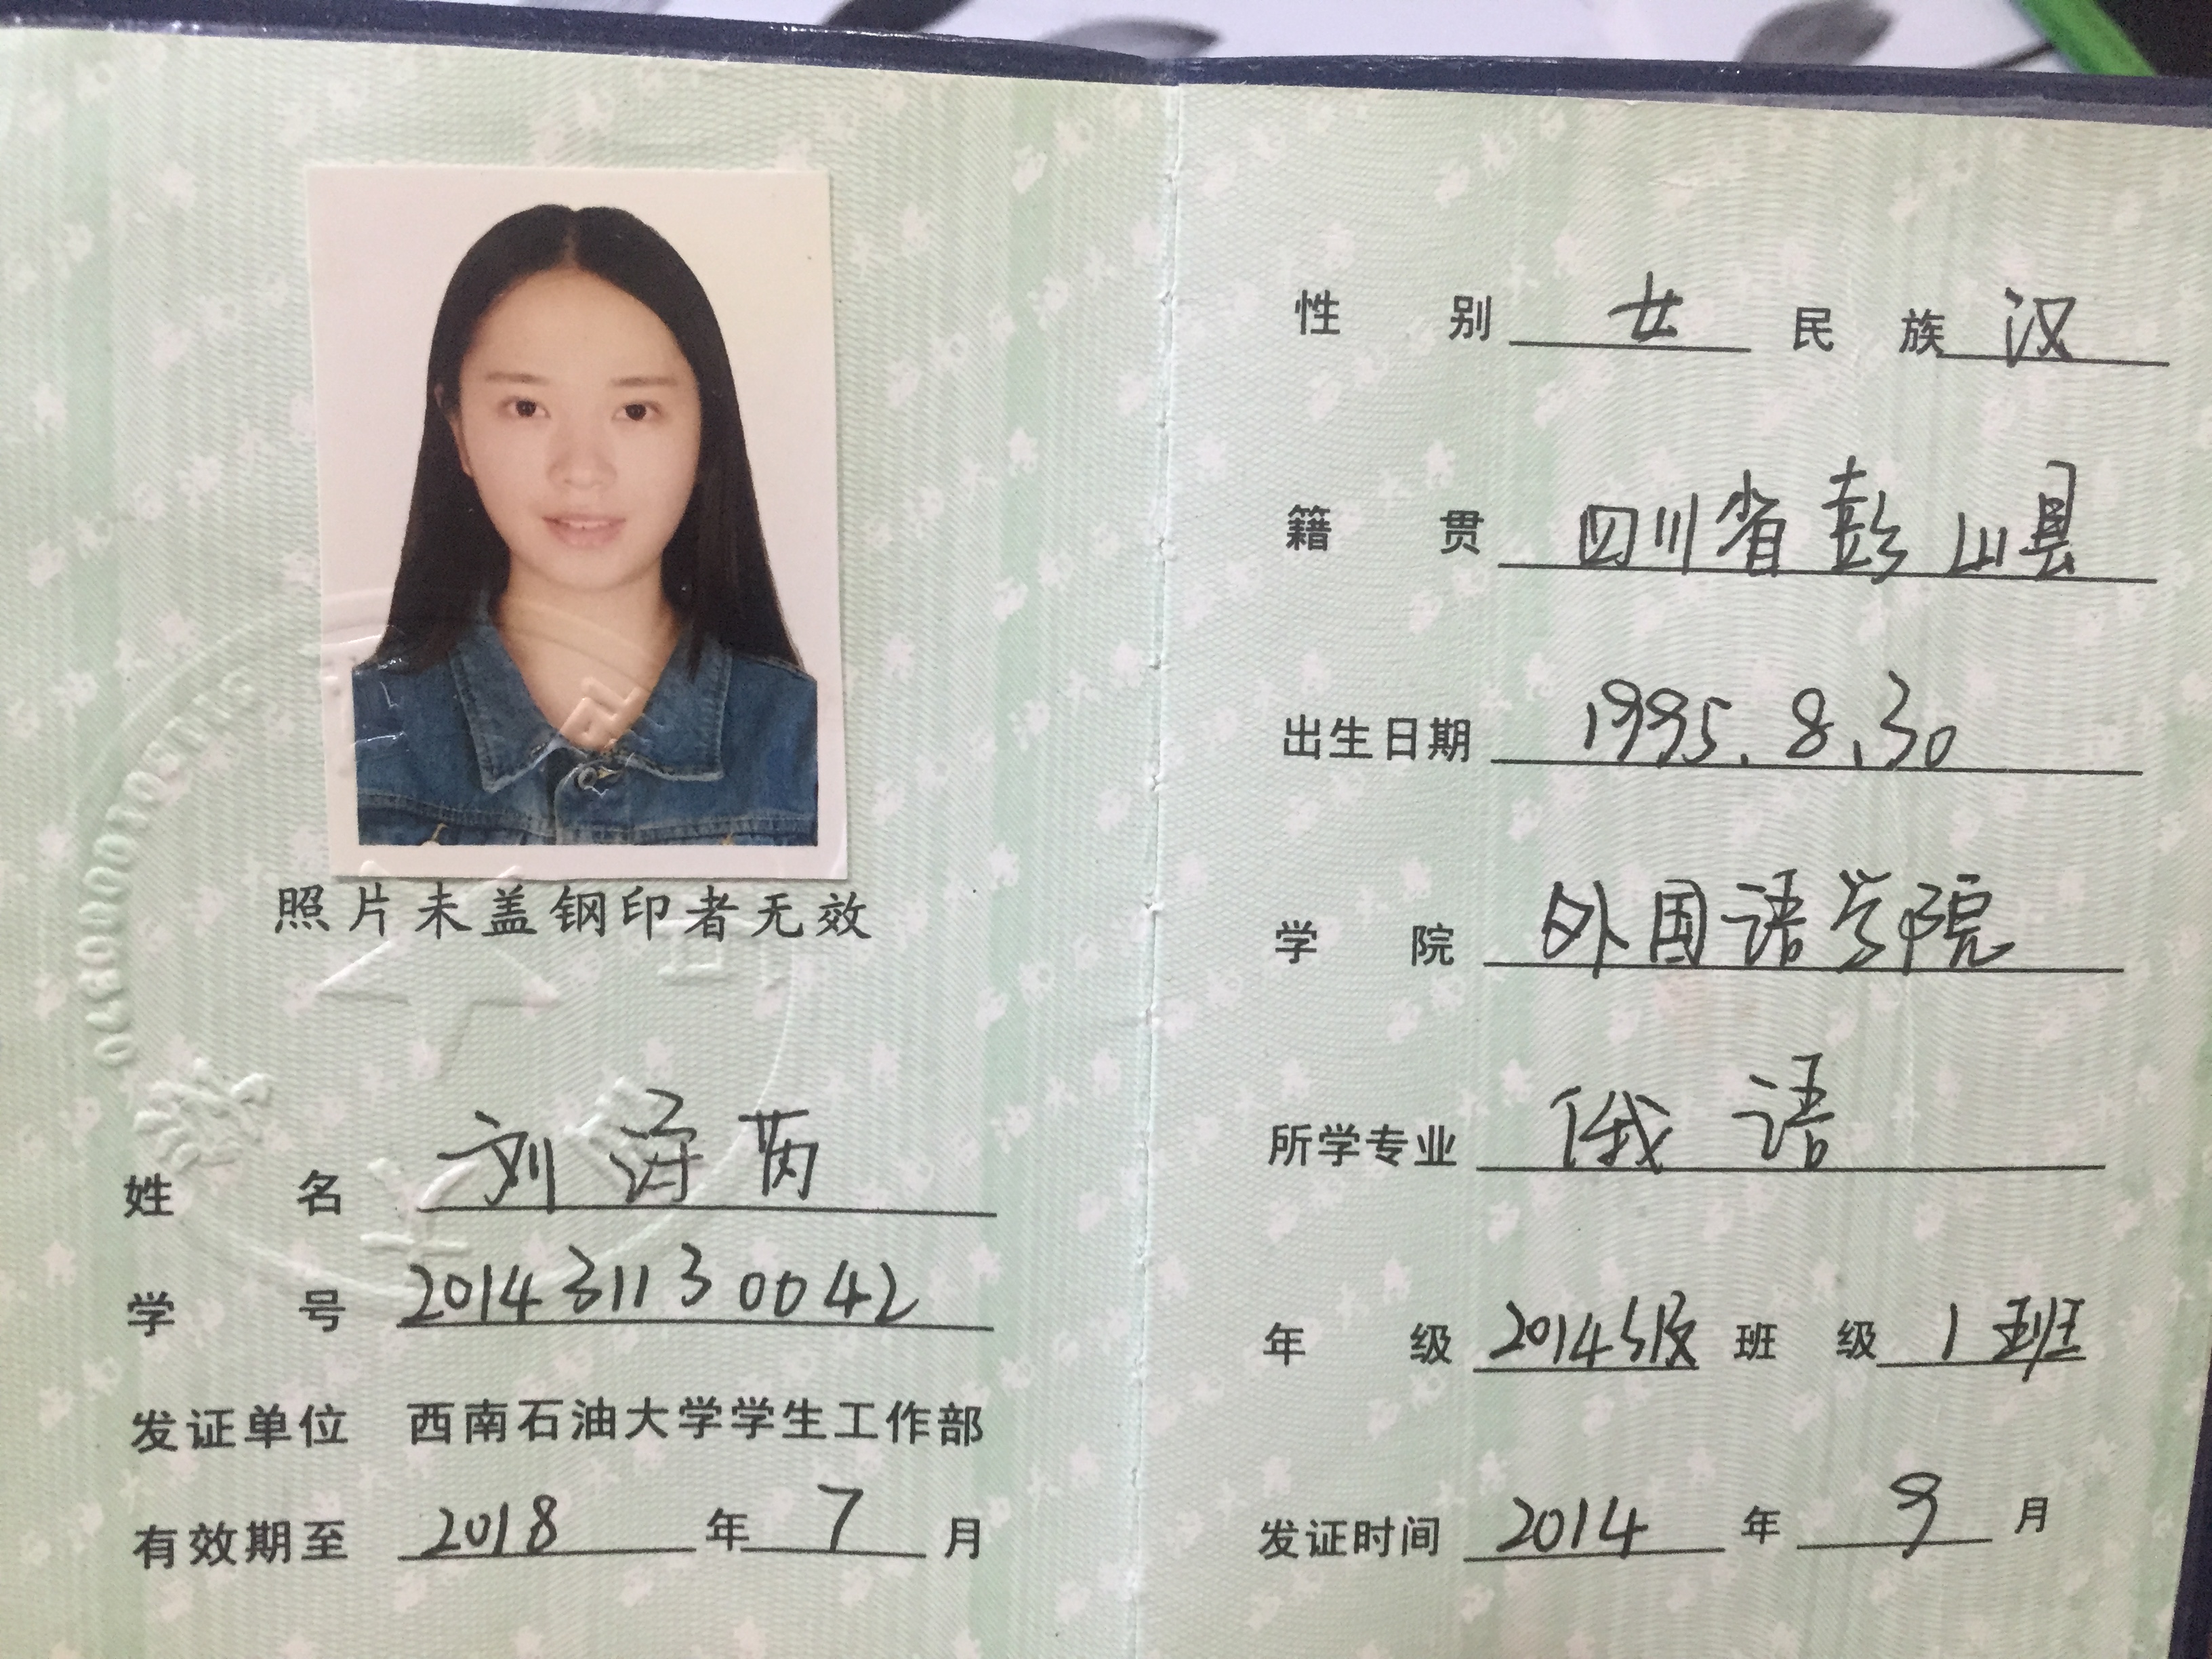 照片未盖钢印者无效
姓名 刘海芮
学号 201431130042
发证单位 西南石油大学学生工作部
有效期至 2018 年 7 月
性别 女 民族 汉
籍贯 四川省彭山县
出生日期 1995.8.30
学院 外国语学院
所学专业 俄语
年级 2014级 班级 1班
发证时间 2014 年 9 月